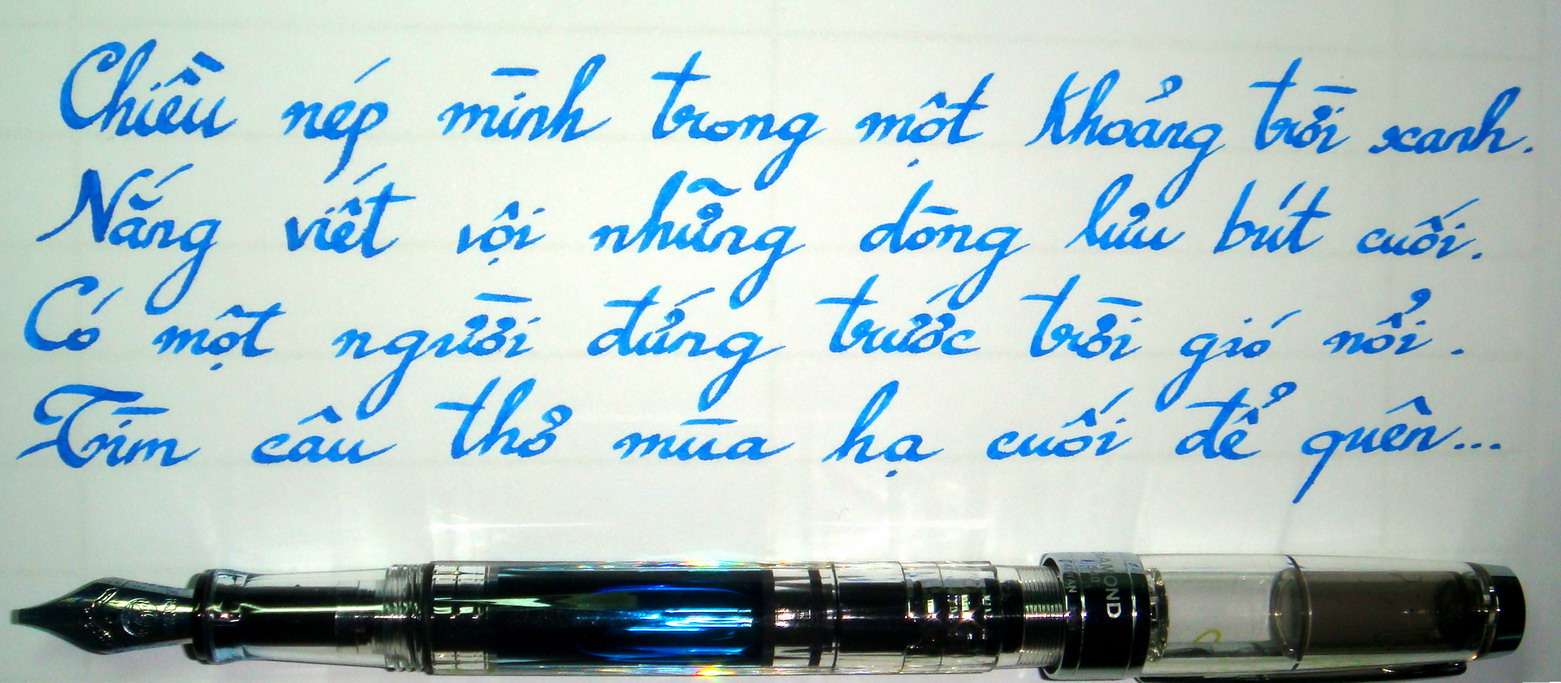 Chiều nép mình trong một khoảng trời xanh.
Nắng viết vội những dòng lưu bút cuối.
Có một người đứng trước trời gió nổi.
Tìm câu thơ mùa hạ cuối để quên...